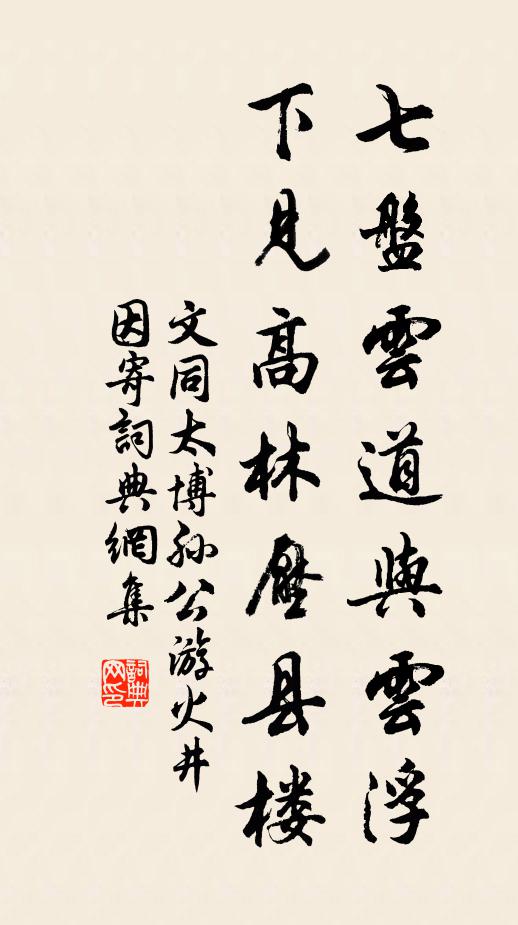 七盤雲道與雲浮
下見高林壓县楼
文同太博孙公游火井
因寄詞典網集
詞典网印